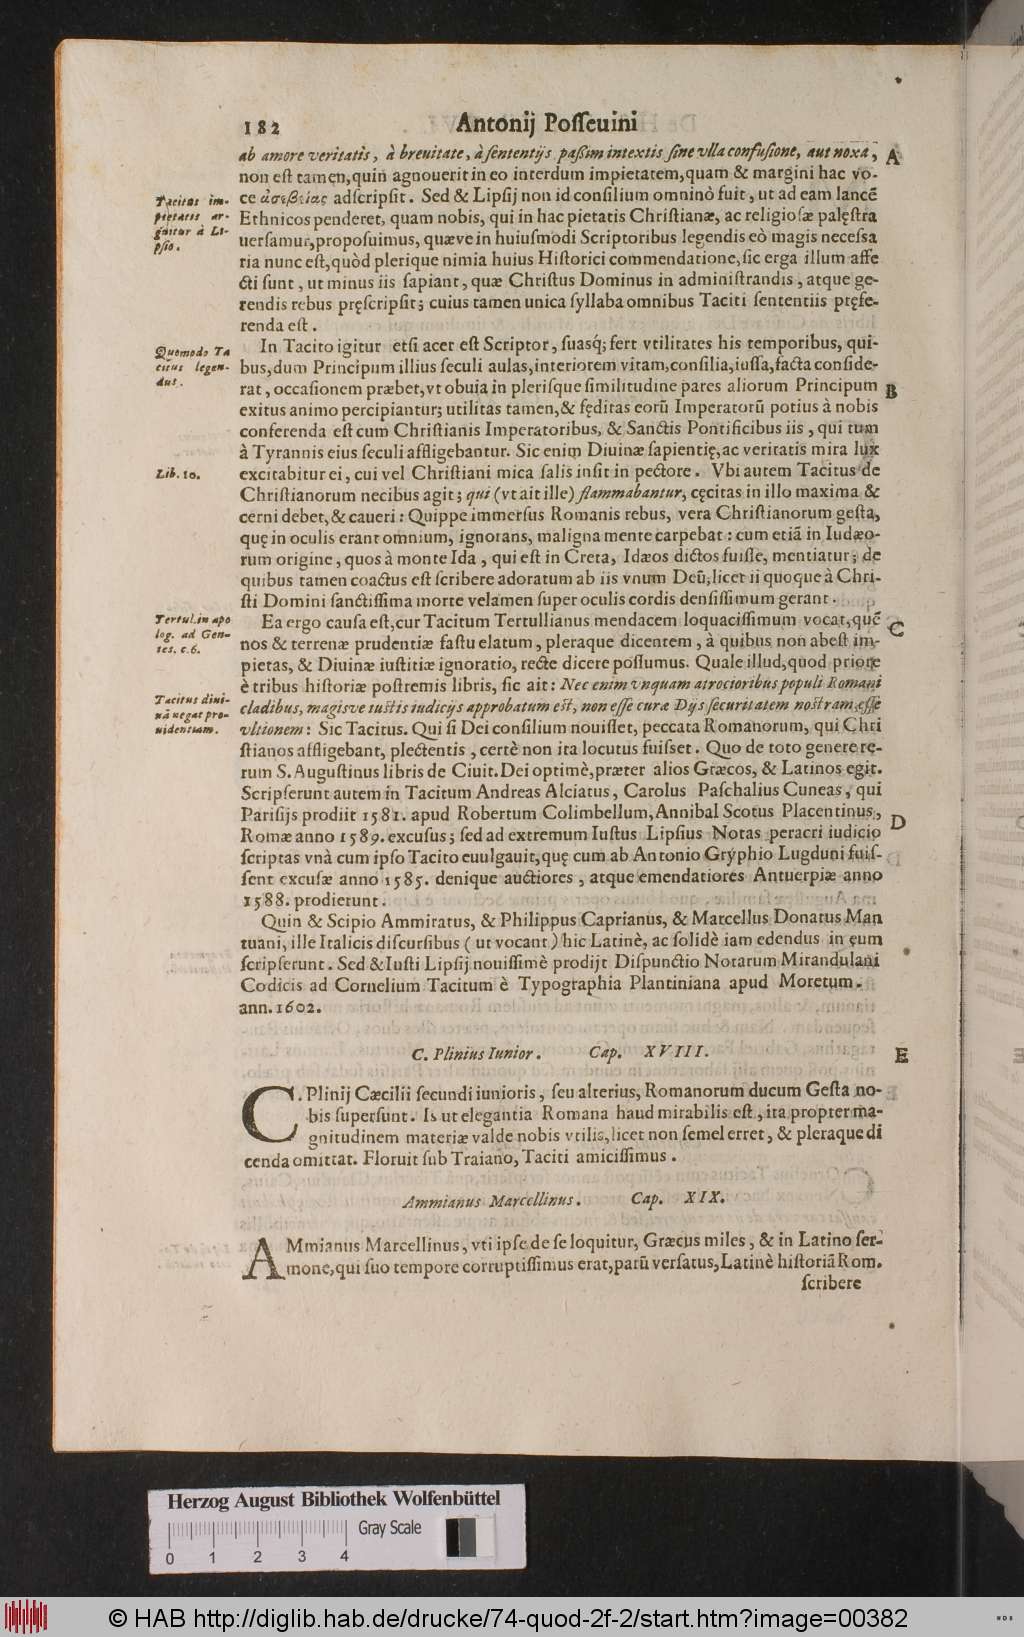 182 Antonij Posseuini
ab amore veritatis, à breuitate, à sententijs passim intextis sine vlla confusione, aut noxa, A
non est tamen, quin agnouerit in eo interdum impietatem, quam & margini hac vo-
Tacitus im-
pietatis ar-
guitur à Li-
psio.
ce ἀσεβείας adscripsit. Sed & Lipsij non id consilium omninò fuit, ut ad eam lancẽ
Ethnicos penderet, quam nobis, qui in hac pietatis Christianæ, ac religiosæ palęstra
uersamur, proposuimus, quæve in huiusmodi Scriptoribus legendis eò magis necessa
ria nunc est, quòd plerique nimia huius Historici commendatione, sic erga illum affe
cti sunt, ut minus iis sapiant, quæ Christus Dominus in administrandis, atque ge-
rendis rebus pręscripsit; cuius tamen unica syllaba omnibus Taciti sententiis pręfe-
renda est.
Quomodo Ta
citus legen-
dus.
In Tacito igitur etsi acer est Scriptor, suasq́; fert vtilitates his temporibus, qui-
bus, dum Principum illius seculi aulas, interiorem vitam, consilia, iussa, facta conside-
rat, occasionem præbet, vt obuia in plerisque similitudine pares aliorum Principum B
exitus animo percipiantur; utilitas tamen, & fęditas eorũ Imperatorũ potius à nobis
conferenda est cum Christianis Imperatoribus, & Sanctis Pontificibus iis, qui tum
à Tyrannis eius seculi affligebantur. Sic enim Diuinæ sapientię, ac veritatis mira lux
Lib. 10.
excitabitur ei, cui vel Christiani mica salis insit in pectore. Vbi autem Tacitus de
Christianorum necibus agit; qui (vt ait ille) flammabantur, cęcitas in illo maxima &
cerni debet, & caueri: Quippe immersus Romanis rebus, vera Christianorum gesta,
quę in oculis erant omnium, ignorans, maligna mente carpebat: cum etiã in Iudæo-
rum origine, quos à monte Ida, qui est in Creta, Idæos dictos fuisse, mentiatur; de
quibus tamen coactus est scribere adoratum ab iis vnum Deũ; licet ii quoque à Chri-
sti Domini sanctissima morte velamen super oculis cordis densissimum gerant.
Tertul. in apo
log. ad Gen-
tes. c. 6.
Ea ergo causa est, cur Tacitum Tertullianus mendacem loquacissimum vocat, quẽ C
nos & terrenæ prudentiæ fastu elatum, pleraque dicentem, à quibus non abest im-
pietas, & Diuinæ iustitiæ ignoratio, recte dicere possumus. Quale illud, quod priore
Tacitus diui-
nã negat pro-
uidentiam.
è tribus historiæ postremis libris, sic ait: Nec enim vnquam atrocioribus populi Romani
cladibus, magisve iustis iudicijs approbatum est, non esse curæ Dijs securitatem nostram, esse
vltionem: Sic Tacitus. Qui si Dei consilium nouisset, peccata Romanorum, qui Chri
stianos affligebant, plectentis, certè non ita locutus fuisset. Quo de toto genere rę-
rum S. Augustinus libris de Ciuit. Dei optimè, præter alios Græcos, & Latinos egit.
Scripserunt autem in Tacitum Andreas Alciatus, Carolus Paschalius Cuneas, qui
Parisijs prodiit 1581. apud Robertum Colimbellum, Annibal Scotus Placentinus,
Romæ anno 1589. excusus; sed ad extremum Iustus Lipsius Notas peracri iudicio D
scriptas vnà cum ipso Tacito euulgauit, quę cum ab Antonio Gryphio Lugduni fuis-
sent excusæ anno 1585. denique auctiores, atque emendatiores Antuerpiæ anno
1588. prodierunt.
Quin & Scipio Ammiratus, & Philippus Caprianus, & Marcellus Donatus Man
tuani, ille Italicis discursibus (ut vocant) hic Latinè, ac solidè iam edendus in eum
scripserunt. Sed & Iusti Lipsij nouissimè prodijt Dispunctio Notarum Mirandulani
Codicis ad Cornelium Tacitum è Typographia Plantiniana apud Moretum.
ann. 1602.
C. Plinius Iunior. Cap. XVIII. E
C. Plinij Cæcilii secundi iunioris, seu alterius, Romanorum ducum Gesta no-
bis supersunt. Is ut elegantia Romana haud mirabilis est, ita propter ma-
gnitudinem materiæ valde nobis vtilis, licet non semel erret, & pleraque di
cenda omittat. Floruit sub Traiano, Taciti amicissimus.
Ammianus Marcellinus. Cap. XIX.
AMmianus Marcellinus, vti ipse de se loquitur, Græcus miles, & in Latino ser-
mone, qui suo tempore corruptissimus erat, parũ versatus, Latinè historiã Rom.
scribere
Herzog August Bibliothek Wolfenbüttel
Gray Scale
0 1 2 3 4
© HAB http://diglib.hab.de/drucke/74-quod-2f-2/start.htm?image=00382